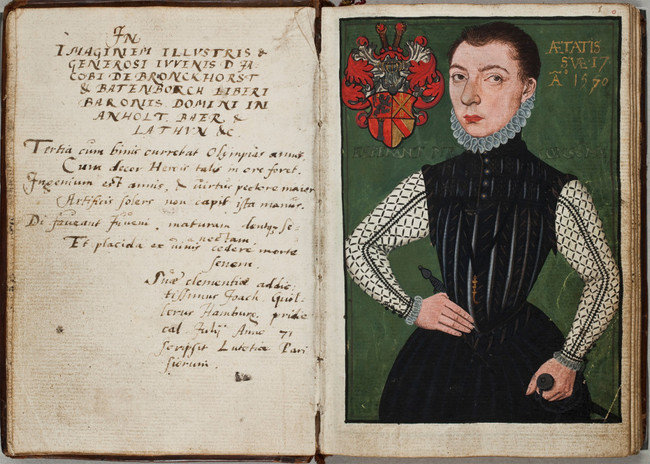 IN
IMAGINEM ILLVSTRIS &
GENEROSI IVVENIS D IA
COBI DE BRONCKHORST
& BATENBORCH LIBERI
BARONIS DOMINI IN
ANHOLT BAER &
LATHVN &c
Tertia cum binis currebat Olympias annis,
Cum decor Herois talis in ore foret.
Ingenium est annis, & virtus pectore maior
Artificis solers non capit ista manus.
Di faveant iuveni, maturam dentque se-
nectam,
Et placida ex vivis cedere morte
senem.
Suae clementiae addic-
tissimus Joach.
Hamburg. pridie
cal. Julij Anno 71
scripsit Lutetiae Pari
siorum.
ÆTATIS
SVE 17
A° 1570